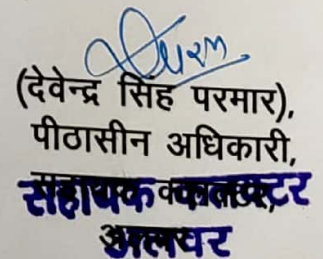 (देवेन्द्र सिंह परमार),
पीठासीन अधिकारी,
सहायक कलक्टर
अलवर